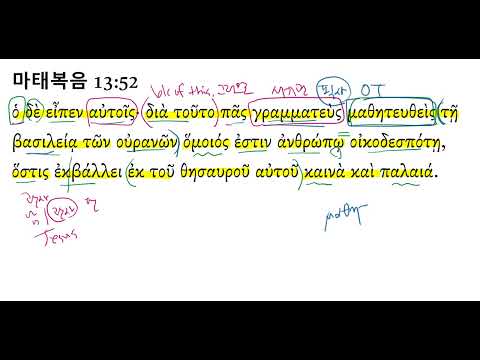 마태복음 13:52
b/c of this, 그러므로 서기관 필사 OT
ὁ δὲ εἶπεν αὐτοῖς· διὰ τοῦτο πᾶς γραμματεὺς μαθητευθεὶς τῇ
βασιλείᾳ τῶν οὐρανῶν ὅμοιός ἐστιν ἀνθρώπῳ οἰκοδεσπότῃ,
ὅστις ἐκβάλλει ἐκ τοῦ θησαυροῦ αὐτοῦ καινὰ καὶ παλαιά.
μαθη
Jesus